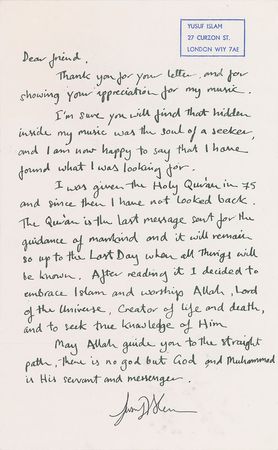 YUSUF ISLAM
27 CURZON ST.
LONDON W1Y 7AE
Dear friend,
Thank you for your letter, and for
showing your appreciation for my music.
I'm sure you will find that hidden
inside my music was the soul of a seeker,
and I am now happy to say that I have
found what I was looking for.
I was given the Holy Qur'an in 75
and since then I have not looked back.
The Qur'an is the last message sent for the
guidance of mankind and it will remain
so up to the Last Day when all things will
be known. After reading it I decided to
embrace Islam and worship Allah, Lord
of the Universe, Creator of life and death,
and to seek true knowledge of Him
May Allah guide you to the straight
path, there is no god but God and Muhammad
is His servant and messenger.